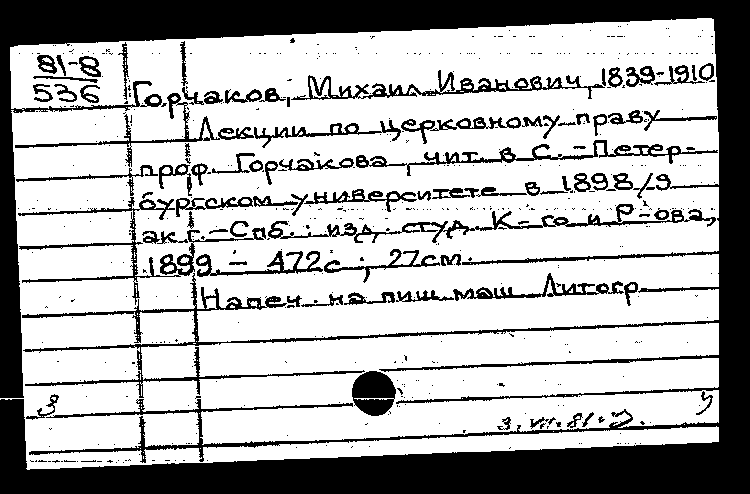 81-8
536
Горчаков, Михаил Иванович, 1839-1910
Лекции по церковному праву
проф. Горчакова, чит. в С.-Петер-
бургском университете в 1898/9
ак г.-Спб.: изд. студ. К-го и Р-ова,
1899. – 472с ; 27см.
Напеч. на пиш. маш. Литогр
3
У
3.VII.81.У.